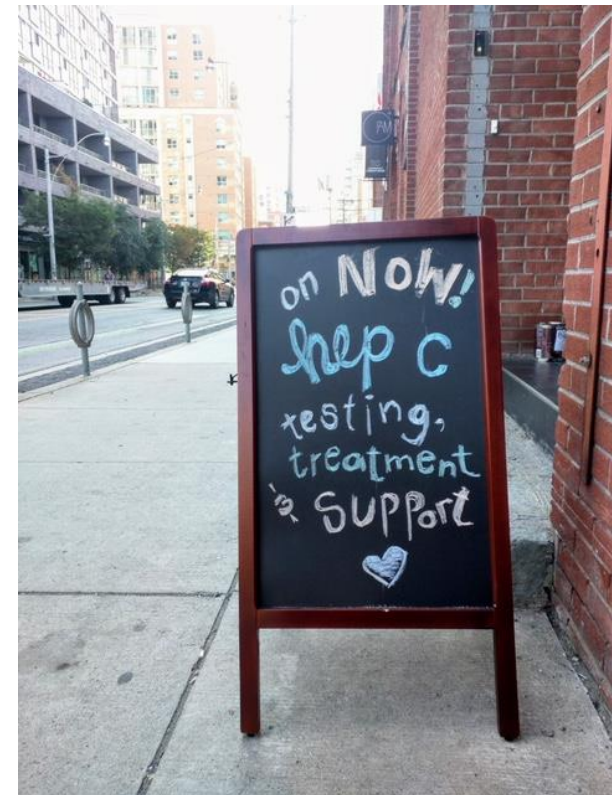 on NOW!
hep c
testing,
treatment
& support
PM